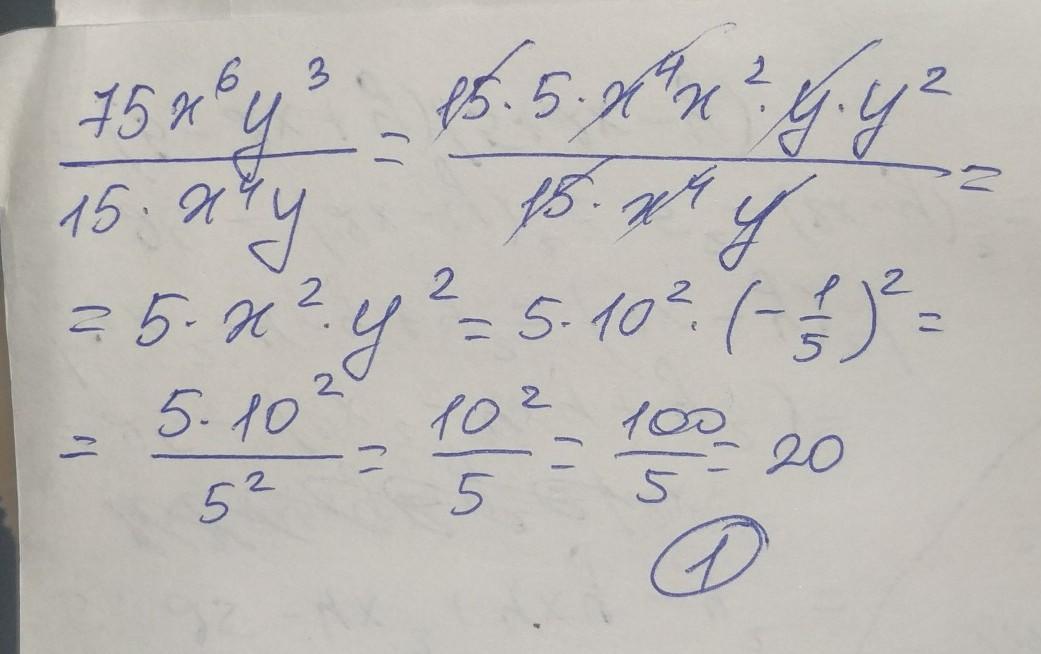 75x⁶y³ / 15·x⁴y = 15·5·x⁴x²·y·y² / 15·x⁴y =
= 5·x²·y² = 5·10²·(-1/5)² =
= 5·10² / 5² = 10² / 5 = 100 / 5 = 20
1